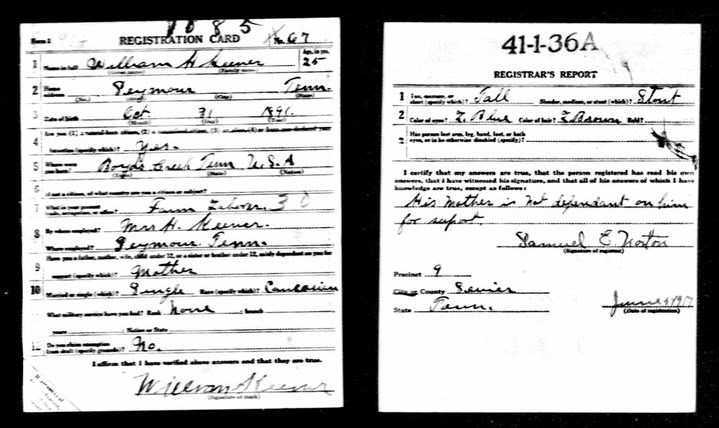 1085
Form 1 REGISTRATION CARD No. 67
1 Name in full William H Keener Age, in yrs. 25
(Given name) (Family name)
2 Home address Seymour Tenn.
(No.) (Street) (City) (State)
3 Date of birth Oct. 31 1891
(Month) (Day) (Year)
4 Are you (1) a natural-born citizen, (2) a naturalized citizen, (3) an alien, (4) or have you declared your
intention (specify which)? Yes.
5 Where were you born? Boyds Creek Tenn U.S.A
(Town) (State) (Nation)
6 If not a citizen, of what country are you a citizen or subject?
7 What is your present trade, occupation, or office? Farm Laborer 30
8 By whom employed? Mrs H. Keener.
Where employed? Seymour Tenn.
9 Have you a father, mother, wife, child under 12, or a sister or brother under 12, solely dependent on you for
support (specify which)? Mother
10 Married or single (which)? Single Race (specify which)? Caucasian
11 What military service have you had? Rank None ; branch
years ; Nation or State
12 Do you claim exemption from draft (specify grounds)? No.
I affirm that I have verified above answers and that they are true.
William Keener
(Signature or mark)
41-1-36 A
REGISTRAR'S REPORT
1 Tall, medium, or short (specify which)? Tall Slender, medium, or stout (which)? Stout
2 Color of eyes? L Blue Color of hair? L Brown Bald?
3 Has person lost arm, leg, hand, foot, or both eyes, or is he otherwise disabled (specify)?
I certify that my answers are true, that the person registered has read his own
answers, that I have witnessed his signature, and that all of his answers of which I have
knowledge are true, except as follows:
His mother is not dependant on him
for suport.
Samuel E. Norton
(Signature of registrar)
Precinct 9
City or County Sevier
State Tenn.
June 5 1917
(Date of registration)